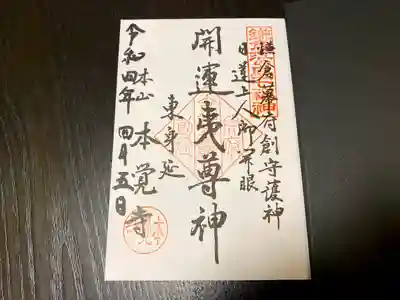 鎌倉幕府創守護神
日道上人御開眼
開運夷尊神
東身延
本山 本覚寺
令和四年 四月五日